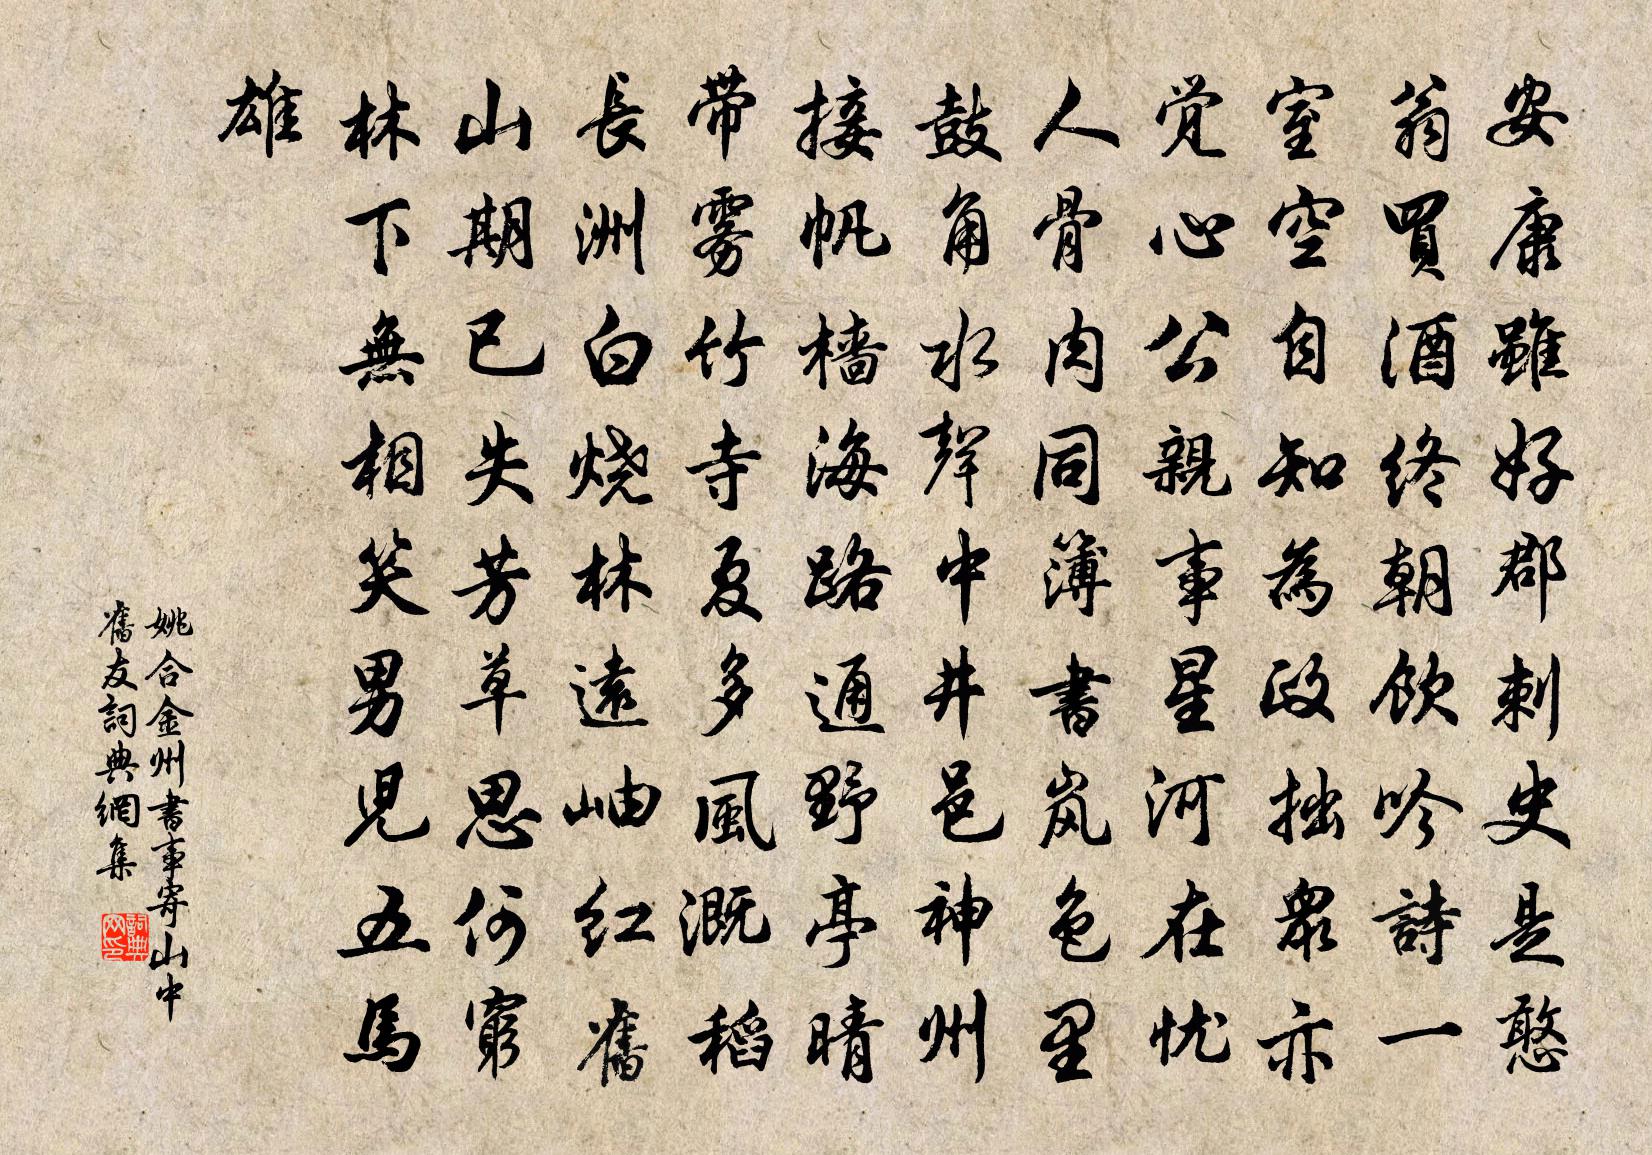 安康雖好郡刺史是憨
翁買酒终朝飲吟詩一
室空自知為政拙眾亦
觉心公親事星河在忧
人骨肉同簿書岚色里
鼓角水聲中井邑神州
接帆檣海路通野亭晴
带雾竹寺夏多風溉稻
長洲白烧林遠岫红舊
山期已失芳草思何窮
林下無相笑男児五馬
雄
姚合金州書事寄山中
舊友詞典網集
詞典网印